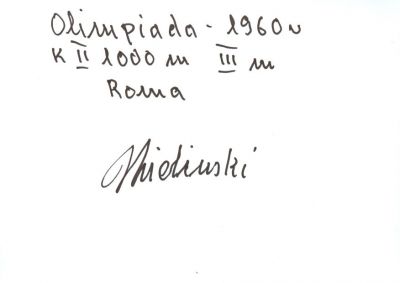 Olimpiada - 1960 r
K II 1000 m III m
Roma
Zielinski